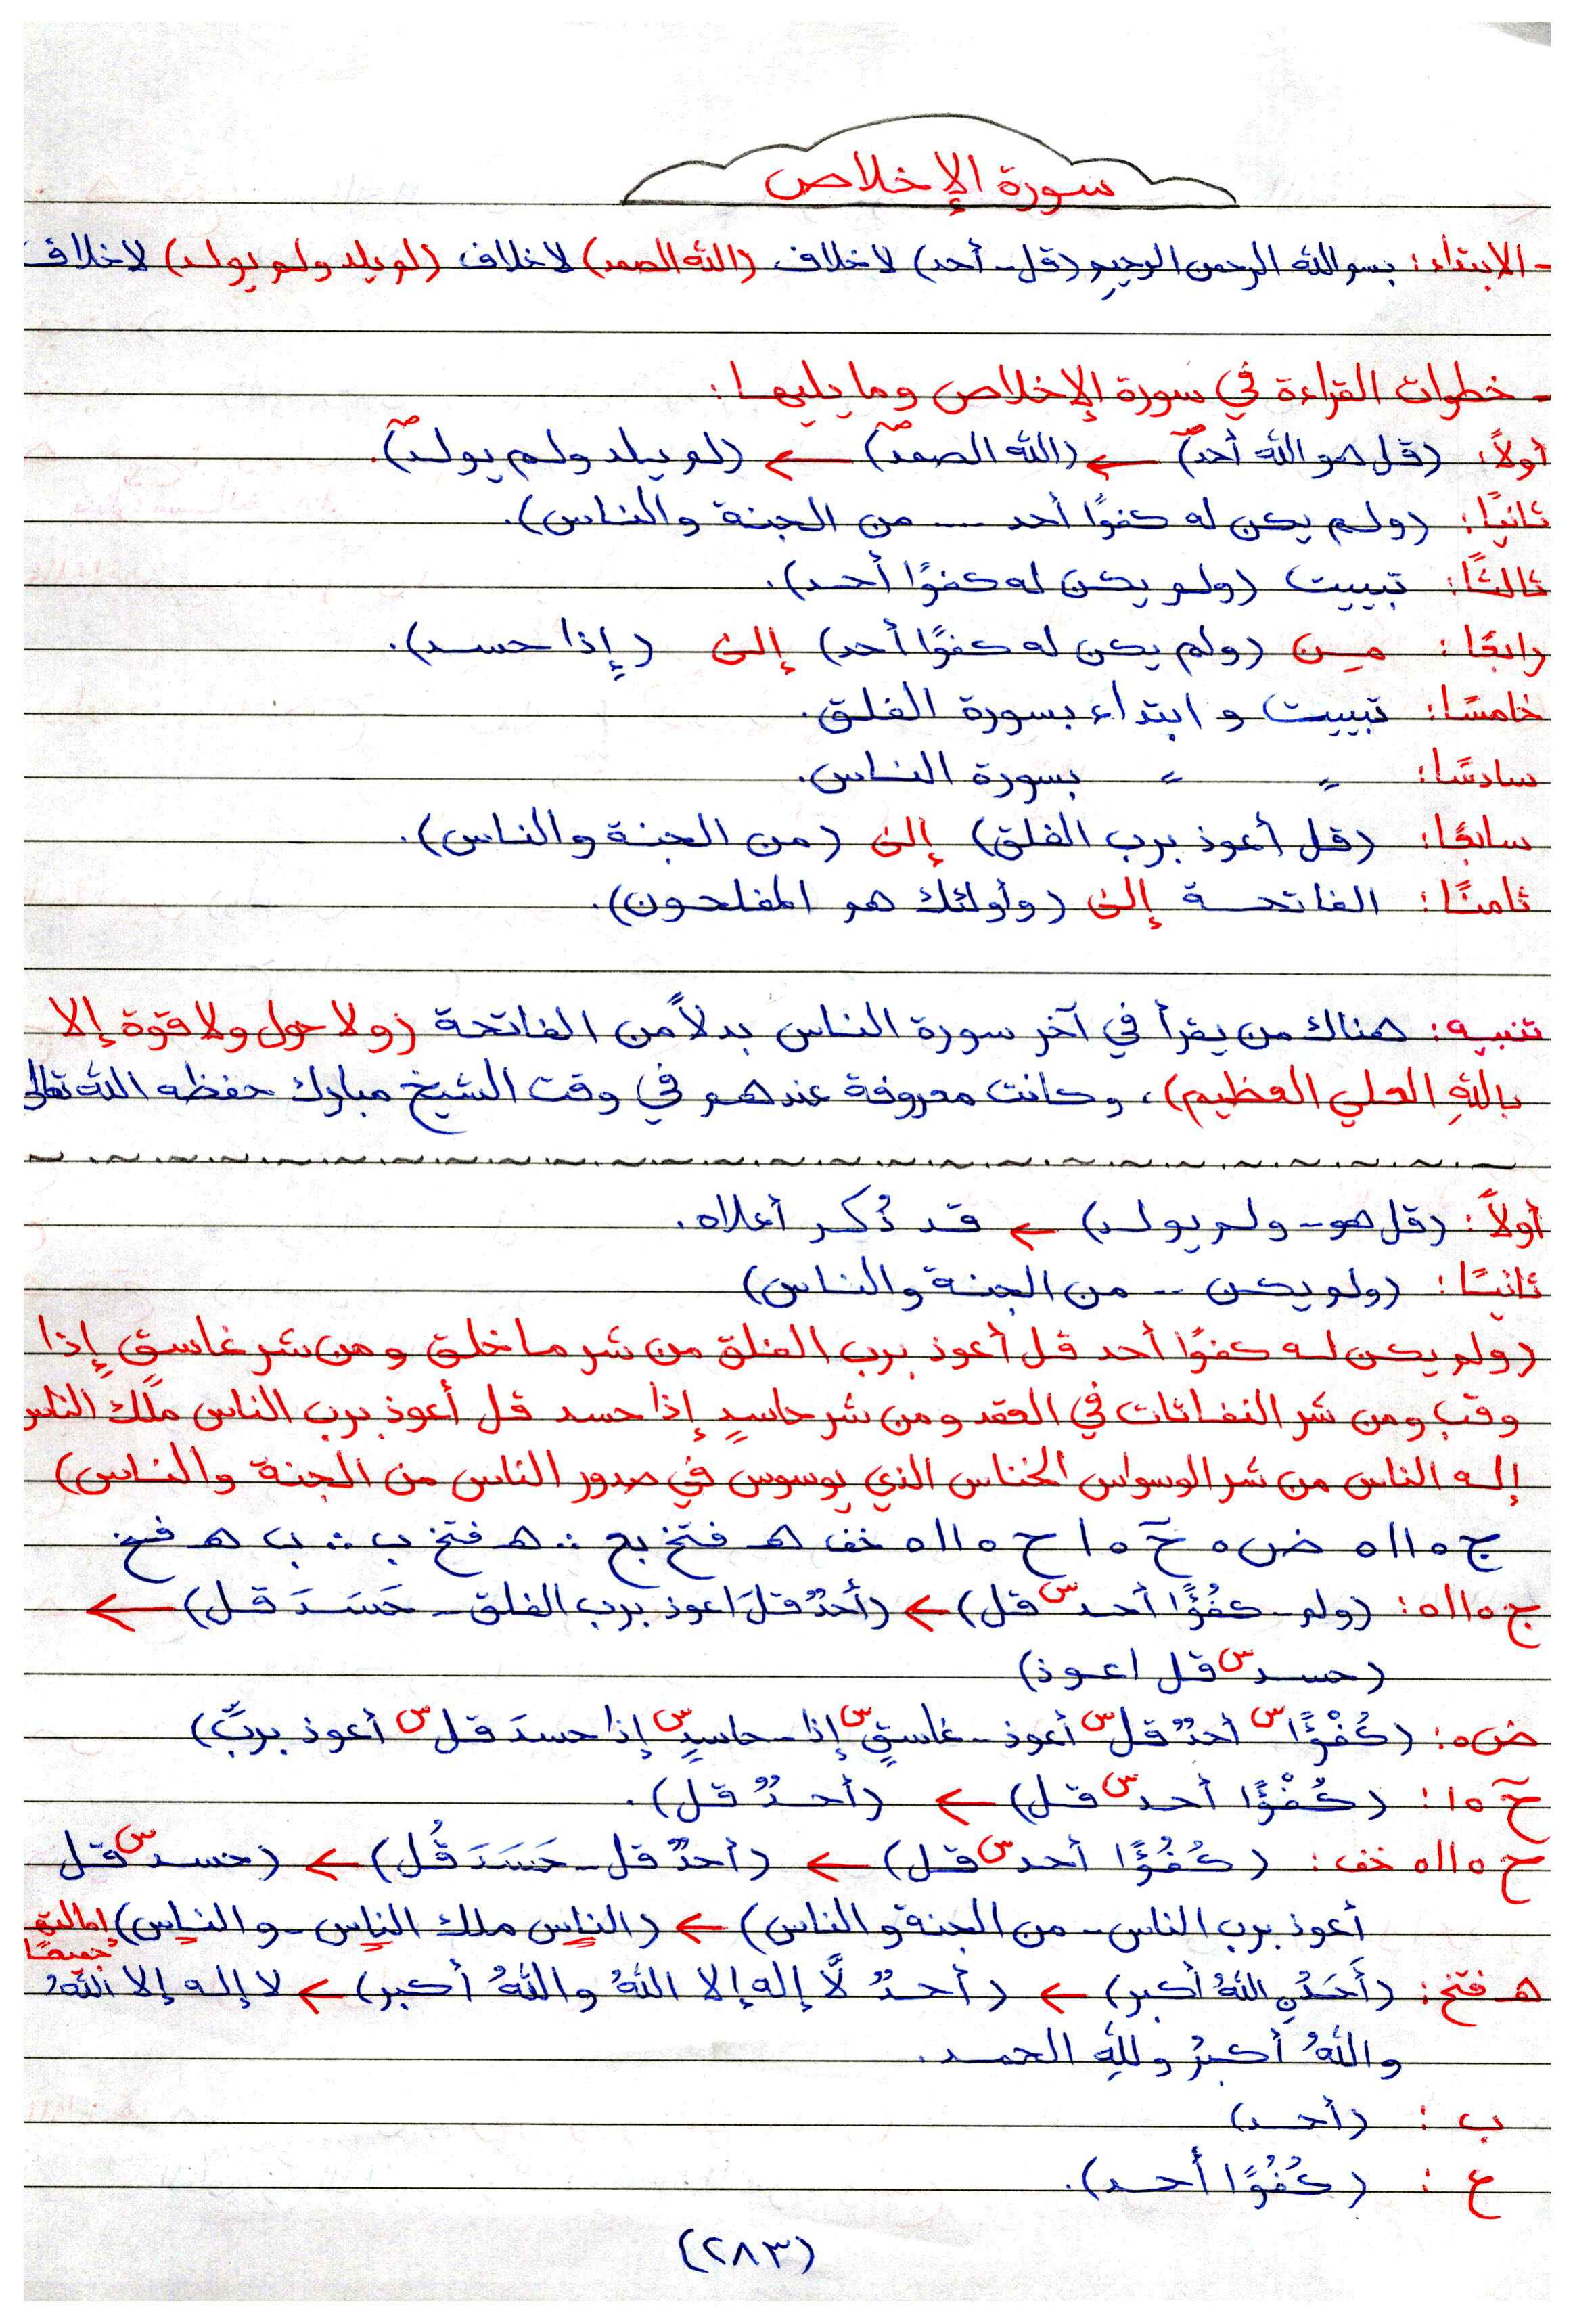 سورة الإخلاص
- الابتداء: بسم الله الرحمن الرحيم (قل - أحد) لا خلاف (الله الصمد) لا خلاف (لم يلد ولم يولد) لا خلاف
- خطوات القراءة في سورة الإخلاص وما يليها:
أولاً: (قل هو الله أحد) ← (الله الصمد) ← (لم يلد ولم يولد).
ثانيًا: (ولم يكن له كفوًا أحد .... من الجنة والناس).
ثالثًا: تبييت (ولم يكن له كفوًا أحد).
رابعًا: من (ولم يكن له كفوًا أحد) إلى (إذا حسد).
خامسًا: تبييت و ابتداء بسورة الفلق.
سادسًا: = = بسورة الناس.
سابعًا: (قل أعوذ برب الفلق) إلى (من الجنة والناس).
ثامنًا: الفاتحة إلى (وأولئك هم المفلحون).
تنبيه: هناك من يقرأ في آخر سورة الناس بدلاً من الفاتحة (ولا حول ولا قوة إلا
بالله العلي العظيم)، وكانت معروفة عندهم في وقت الشيخ مبارك حفظه الله تعالى
أولاً: (قل هو - ولم يولد) ← قد ذُكر أعلاه.
ثانيًا: (ولم يكن .. من الجنة والناس)
(ولم يكن له كفوًا أحد قل أعوذ برب الفلق من شر ما خلق ومن شر غاسقٍ إذا
وقب ومن شر النفاثات في العقد ومن شر حاسدٍ إذا حسد قل أعوذ برب الناس ملك الناس
إله الناس من شر الوسواس الخناس الذي يوسوس في صدور الناس من الجنة والناس)
ج٥١١٥ ض٥ خ١٥ ح٥١١٥ خف هـ فتخ بج :. هـ فتخ ب :. ب هـ فتخ
ج٥١١٥: (ولم - كُفُؤًا أحد س قل) ← (أحدٌ قلَ اعوذ برب الفلق - حَسَدَ قل) ←
(حسد س قل اعوذ)
ض٥: (كُفْؤًا س أحدٌ قل س أعوذ - غاسقٍ س إذا - حاسدٍ س إذا حسدَ قل س أعوذ بربِّ)
خ١٥: (كُفْؤًا أحد س قل) ← (أحدٌ قل).
ح٥١١٥ خف: (كُفُؤًا أحد س قل) ← (أحدٌ قل - حَسَدَ قُل) ← (حسد س قل
أعوذ برب الناس - من الجنة والناس) ← (الناس ملك الناس - والناس) إمالته جميعًا
هـ فتخ: (أَحَدُنِ اللهُ أكبر) ← (أحدٌ لَّا إله إلا اللهُ واللهُ أكبر) ← لا إله إلا اللهُ
واللهُ أكبرُ وللهِ الحمد.
ب: (أحد)
ع: (كُفُوًا أحد).
(٢٨٣)